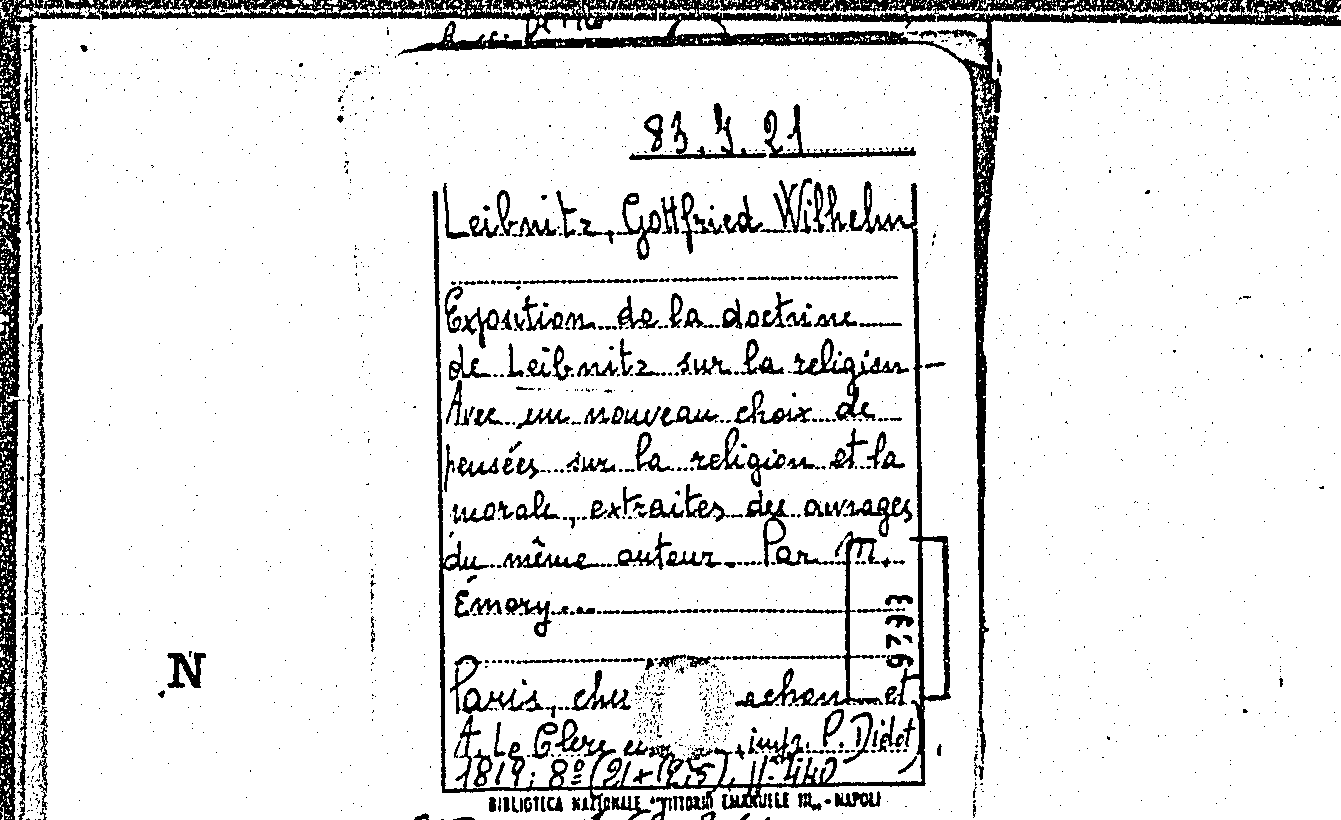 83.J.21
Leibnitz, Gottfried Wilhelm
Exposition de la doctrine
de Leibnitz sur la religion
Avec un nouveau choix de
pensées sur la religion et la
morale, extraites des ouvrages
du même auteur. Par M.
Émery...
9733
N
Paris, chez echon et
A. Le Clere impr. P. Didot
1819; 8º (21x12,5), 440
BIBLIOTECA NAZIONALE "VITTORIO EMANUELE III" - NAPOLI